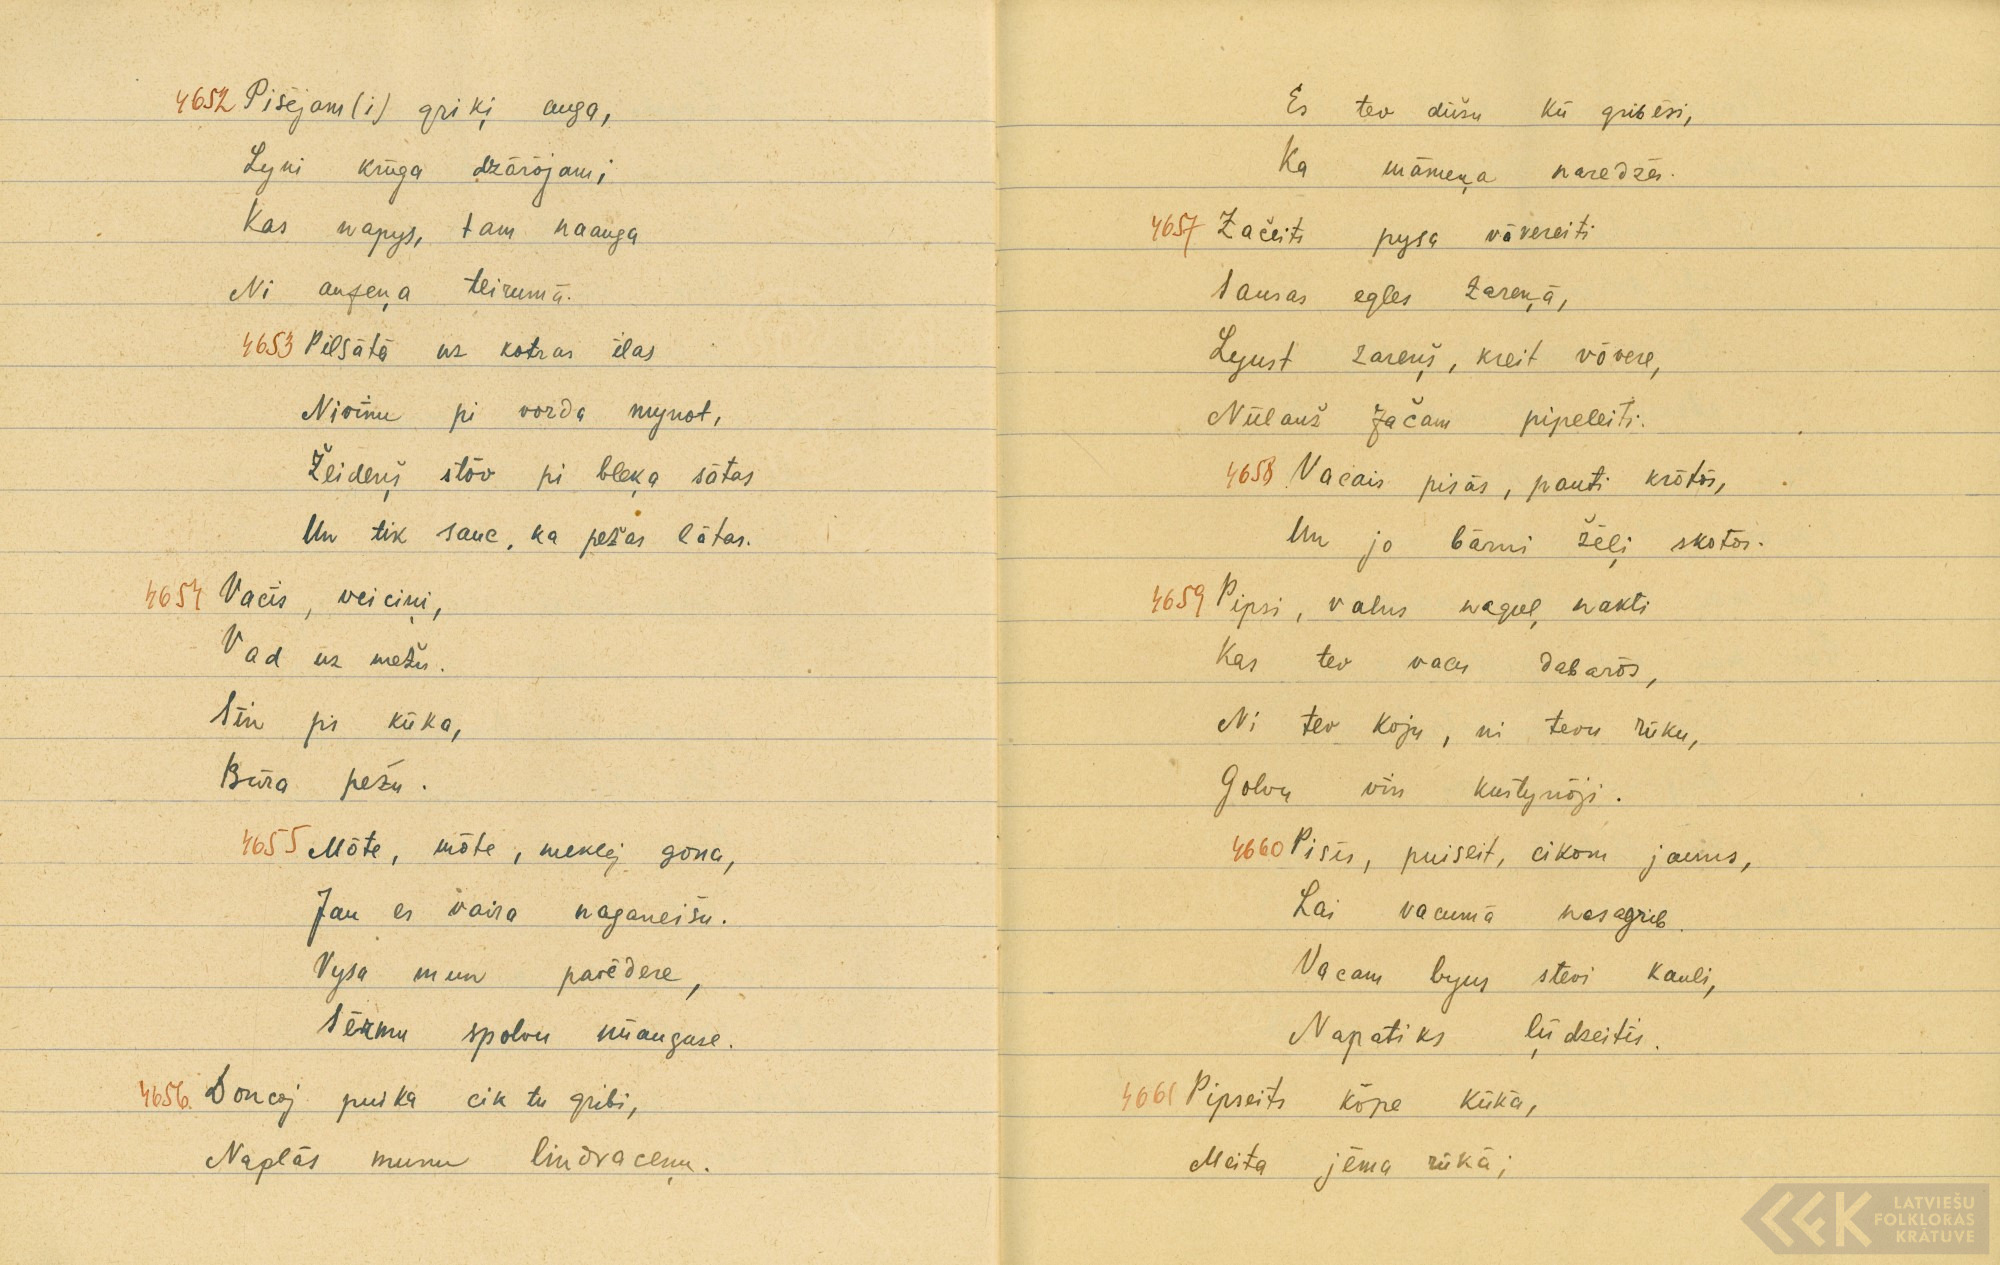 4652 Pisējam(i) griķi auga,
Lyni krūga dzārōjam;
Kas napys, tam naauga
Ni auzeņa teirumā.
4653 Pilsātā uz kotras īlas
Nivīnu pi vorda mynot,
Žeideņš stōv pi bleķa sātas
Un tik sauc, ka pežas lātas.
4654 Vacīs, veiciņi,
Vad uz mežu.
Sīn pi kūka,
Bura pežu.
4655 Mōte, mōte, meklej gona,
Jau es vaira naganeišu.
Vysa mun parēdere,
Sērmu spolvu nūauguse.
4656. Doncoj puika cik tu gribi,
Naplēs munu lindraceņu.
Es tev dūšu kū gribēsi,
Ka māmeņa naredzēs.
4657 Začeits pysa vōvereiti
Sausas egles zareņā,
Lyust zareņš, kreit vōvere,
Nūlauž začam pipeleiti.
4658 Vacais pisās, pauti krōtōs,
Un jo bārni žēļi skotōs.
4659 Pipsi, valns naguļ nakti
Kas tev vacu dabarōs,
Ni tev koju, ni tevu rūku,
Golvu vīn kustynōji.
4660 Pisīs, puiseit, cikom jauns,
Lai vacumā nasagrib.
Vacam byus stevi kauli,
Napatiks ļūdzeitīs.
4661 Pipseits kōpe kūkā,
Meita jēma rūkā;
LATVIEŠU
FOLKLORAS
KRĀTUVE